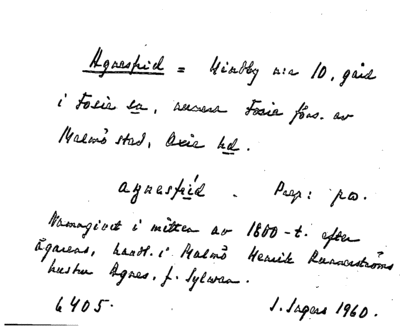 Agnesfrid = Hindby n:r 10, gård
i Fosie sn, numera Fosie förs. av
Malmö stad, Oxie hd.
agnesfríd. Prep: på.
Namngivet i mitten av 1800-t. efter
ägarens, handl. i Malmö Henrik Runnerströms
hustru Agnes, f. Sylwan.
6405. I. Ingers 1960.